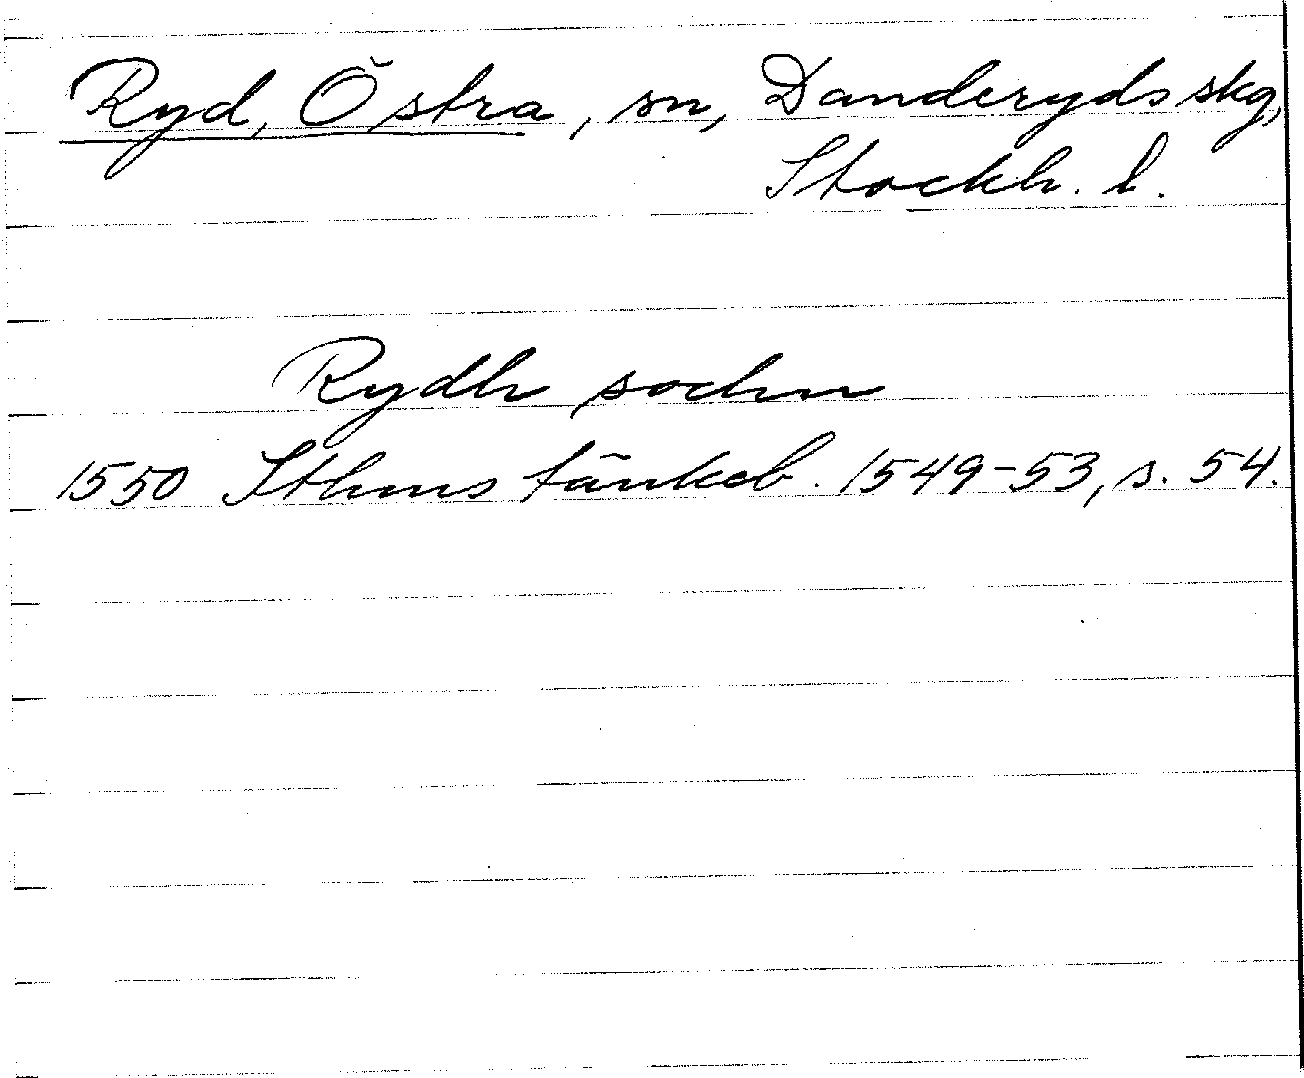 Ryd, Östra, sn, Danderyds skg,
Stockh. l.
Rydh sochn
1550 Sthms tänkeb. 1549-53, s. 54.